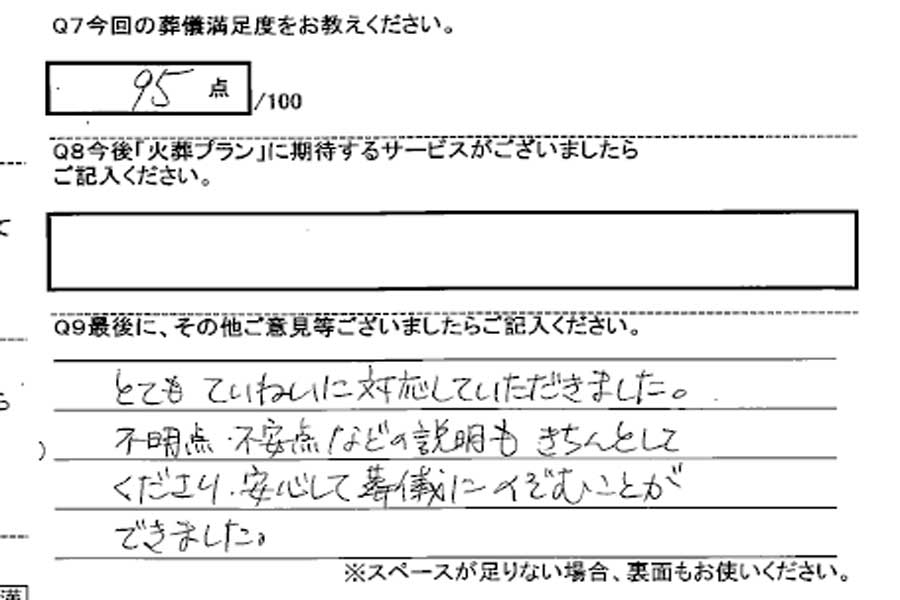 Q7今回の葬儀満足度をお教えください。
95 点 /100
Q8今後「火葬プラン」に期待するサービスがございましたら
ご記入ください。
Q9最後に、その他ご意見等ございましたらご記入ください。
とても ていねいに対応していただきました。
不明点・不安点などの説明も きちんとして
くださり、安心して葬儀にのぞむことが
できました。
※スペースが足りない場合、裏面もお使いください。